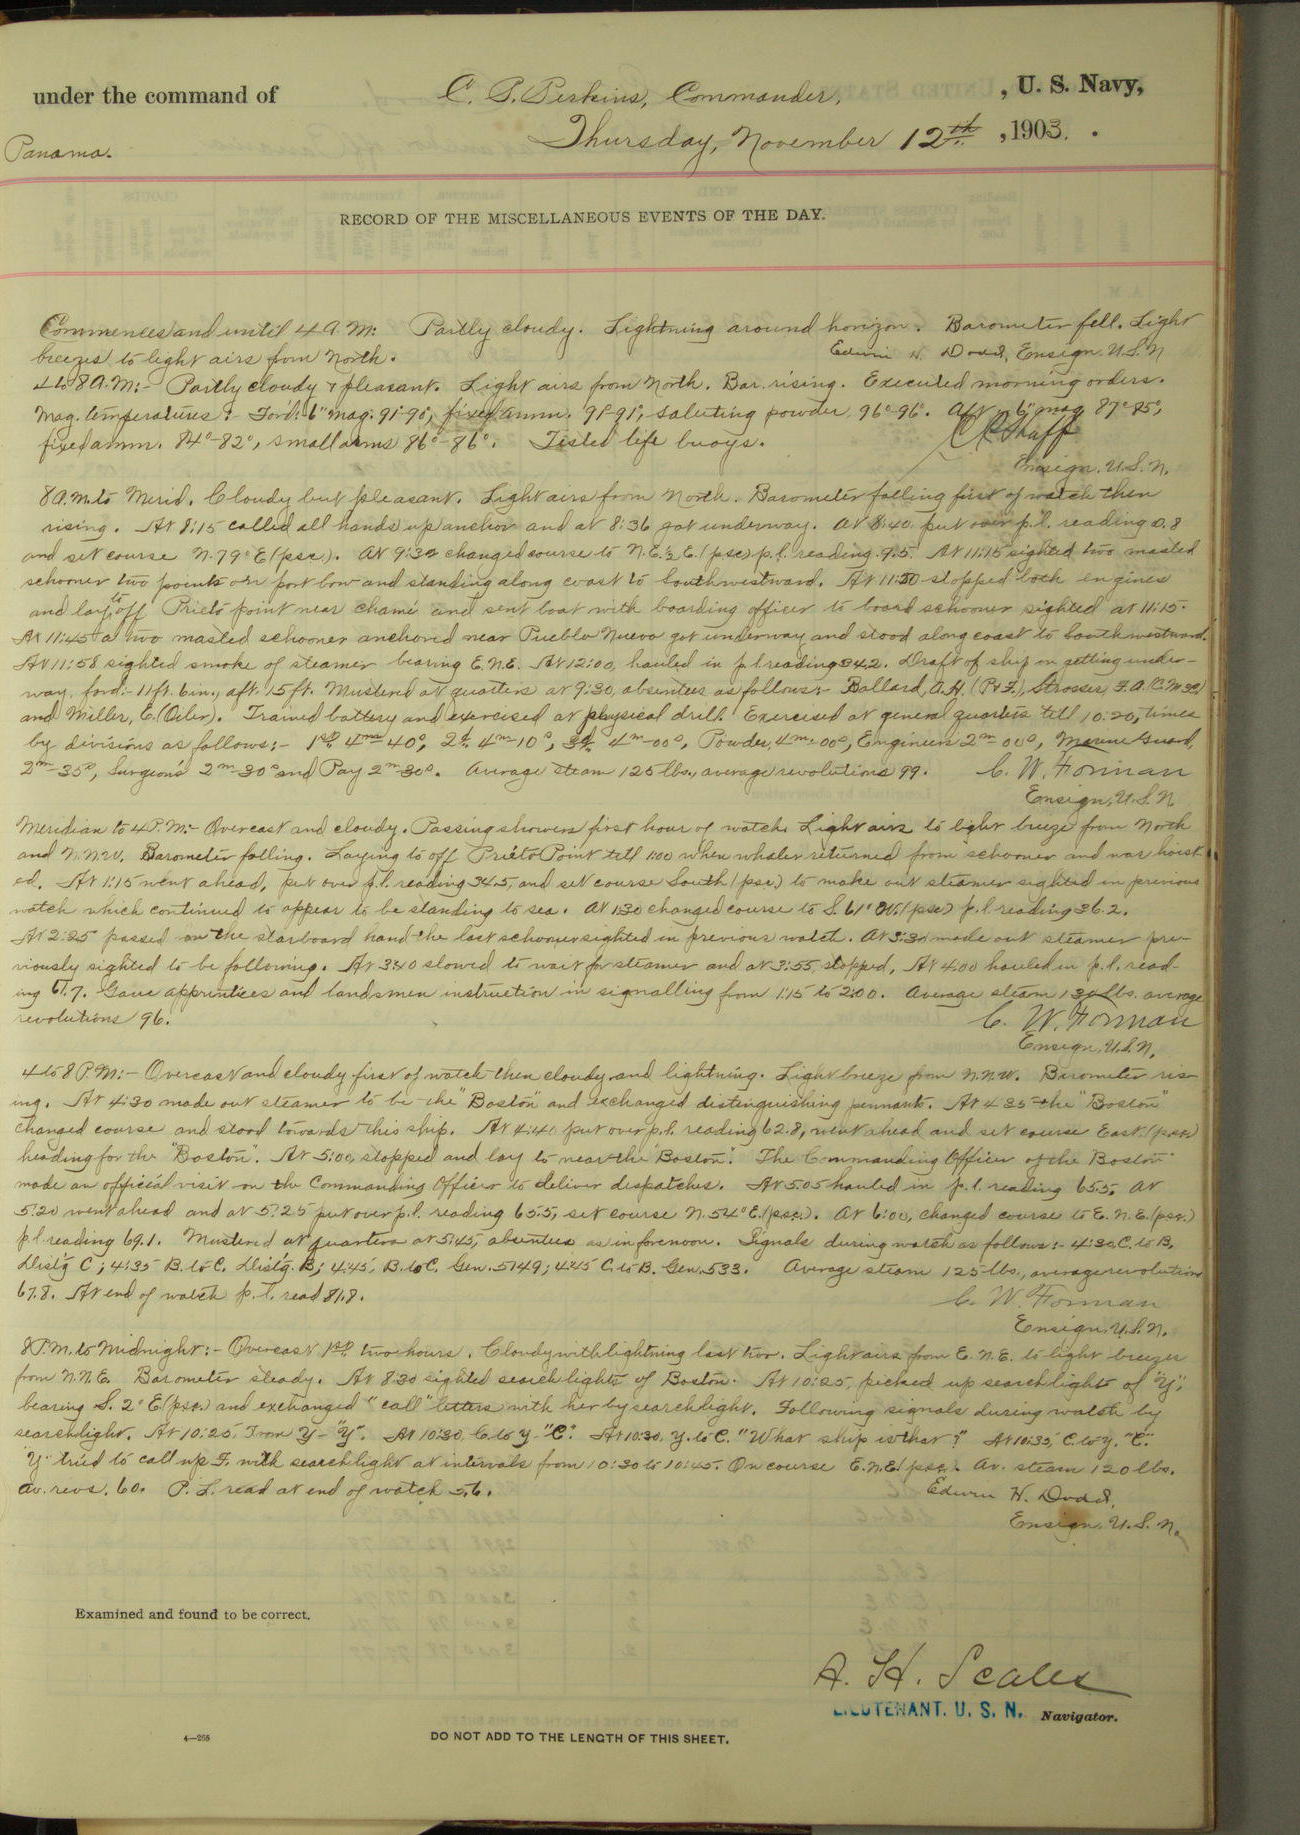 under the command of C. P. Perkins, Commander, , U. S. Navy,
Thursday, November 12th , 1903.
Panama.
RECORD OF THE MISCELLANEOUS EVENTS OF THE DAY.
Commences and until 4 A.M: Partly cloudy. Lightning around horizon. Barometer fell. Light
breezes to light airs from North. Edwin H. Dodd, Ensign, U.S.N
4 to 8 A.M:- Partly cloudy & pleasant. Light airs from North. Bar. rising. Executed morning orders.
Mag. temperatures:- For'd. 6" mag. 91°-90°, fixed amm. 91°-91°, saluting powder 96°-96°. Aft 6" mag 87°-85°,
fixed amm. 84°-82°, small arms 86°-86°. Tested life buoys.
Ensign, U.S.N.
8 A.M. to Merid. Cloudy but pleasant. Light airs from North. Barometer falling first of watch then
rising. At 8:15 called all hands up anchor and at 8:36 got underway. At 8:40 put over p.l. reading 0.8
and set course N. 79° E (psc.). At 9:32 changed course to N.E.½E. (psc) p.l. reading 9.5. At 11:15 sighted two masted
schooner two points on port bow and standing along coast to Southwestward. At 11:30 stopped both engines
and lay to off Prieto point near Chamé and sent boat with boarding officer to board schooner sighted at 11:15.
At 11:45 a two masted schooner anchored near Pueblo Nuevo got underway and stood along coast to Southwestward.
At 11:58 sighted smoke of steamer bearing E.N.E. At 12:00, hauled in p.l. reading 34.2. Draft of ship on getting under-
way, ford:- 11ft. 6in., aft. 15ft. Mustered at quarters at 9:30, absentees as follows:- Ballard, A.H. (P.F.), Strosser, F.A. (C.M.3c)
and Miller, C. (Oiler). Trained battery and exercised at physical drill. Exercised at general quarters till 10:20, times
by divisions as follows:- 1st 4m-40s, 2d. 4m-10s, 3d. 4m-00s, Powder, 4m-00s, Engineers 2m-00s, Marine Guard,
2m-35s, Surgeon's 2m-30s and Pay 2m-30s. Average steam 125 lbs., average revolutions 99. C. W. Forman
Ensign, U.S.N
Meridian to 4 P.M:- Overcast and cloudy. Passing showers first hour of watch. Light airs to light breeze from North
and N.N.W. Barometer falling. Laying to off Prieto Point till 1:00 when whaler returned from schooner and was hoist-
ed. At 1:15 went ahead, put over p.l. reading 34.5, and set course South (psc) to make out steamer sighted in previous
watch which continued to appear to be standing to sea. At 1:30 changed course to S. 61° W. (psc) p.l. reading 36.2.
At 2:25 passed on the starboard hand the last schooner sighted in previous watch. At 3:30 made out steamer pre-
viously sighted to be following. At 3:40 slowed to wait for steamer and at 3:55, stopped. At 4:00 hauled in p.l. read-
ing 61.7. Gave apprentices and landsmen instruction in signalling from 1:15 to 2:00. Average steam 130 lbs. average
revolutions 96. C. W. Forman
Ensign, U.S.N.
4 to 8 P.M:- Overcast and cloudy first of watch then cloudy and lightning. Light breeze from N.N.W. Barometer ris-
ing. At 4:30 made out steamer to be the "Boston" and exchanged distinguishing pennants. At 4:35 the "Boston"
changed course and stood towards this ship. At 4:40 put over p.l. reading 62.8, went ahead and set course East. (psc)
heading for the "Boston". At 5:00, stopped and lay to near the Boston". The Commanding Officer of the Boston"
made an official visit on the Commanding Officer to deliver despatches. At 5:05 hauled in p.l. reading 65.5. At
5:20 went ahead and at 5:25 put over p.l. reading 65.5, set course N. 54° E. (psc.). At 6:00, changed course to E.N.E. (psc.)
p.l. reading 69.1. Mustered at quarters at 5:45, absentees as in forenoon. Signals during watch as follows:- 4:30, C. to B.
Dist'g C; 4:35 B. to C. Dist'g. B; 4:45, B. to C. Gen. 5149; 4:45 C. to B. Gen. 533. Average steam 125 lbs., average revolutions
67.8. At end of watch p.l. read 81.8. C. W. Forman
Ensign, U.S.N.
8 P.M. to Midnight:- Overcast 1st two hours. Cloudy with lightning last two. Light airs from E.N.E. to light breezes
from N.N.E. Barometer steady. At 8:30 sighted searchlights of Boston. At 10:25, picked up searchlights of "Y",
bearing S. 2° E (psc.) and exchanged "call" letters with her by searchlight. Following signals during watch by
searchlight. At 10:25, From Y- "Y". At 10:30, C. to Y- "C". At 10:30, Y. to C. "What ship is that?" At 10:35, C. to Y. "C."
"Y" tried to call up F. with searchlight at intervals from 10:30 to 10:45. On course E.N.E. (psc). Av. steam 120 lbs.
Av. revs. 60. P.L. read at end of watch 5.6. Edwin H. Dodd,
Ensign, U.S.N.
Examined and found to be correct.
A. H. Scales
LIEUTENANT. U. S. N. Navigator.
4—255
DO NOT ADD TO THE LENGTH OF THIS SHEET.